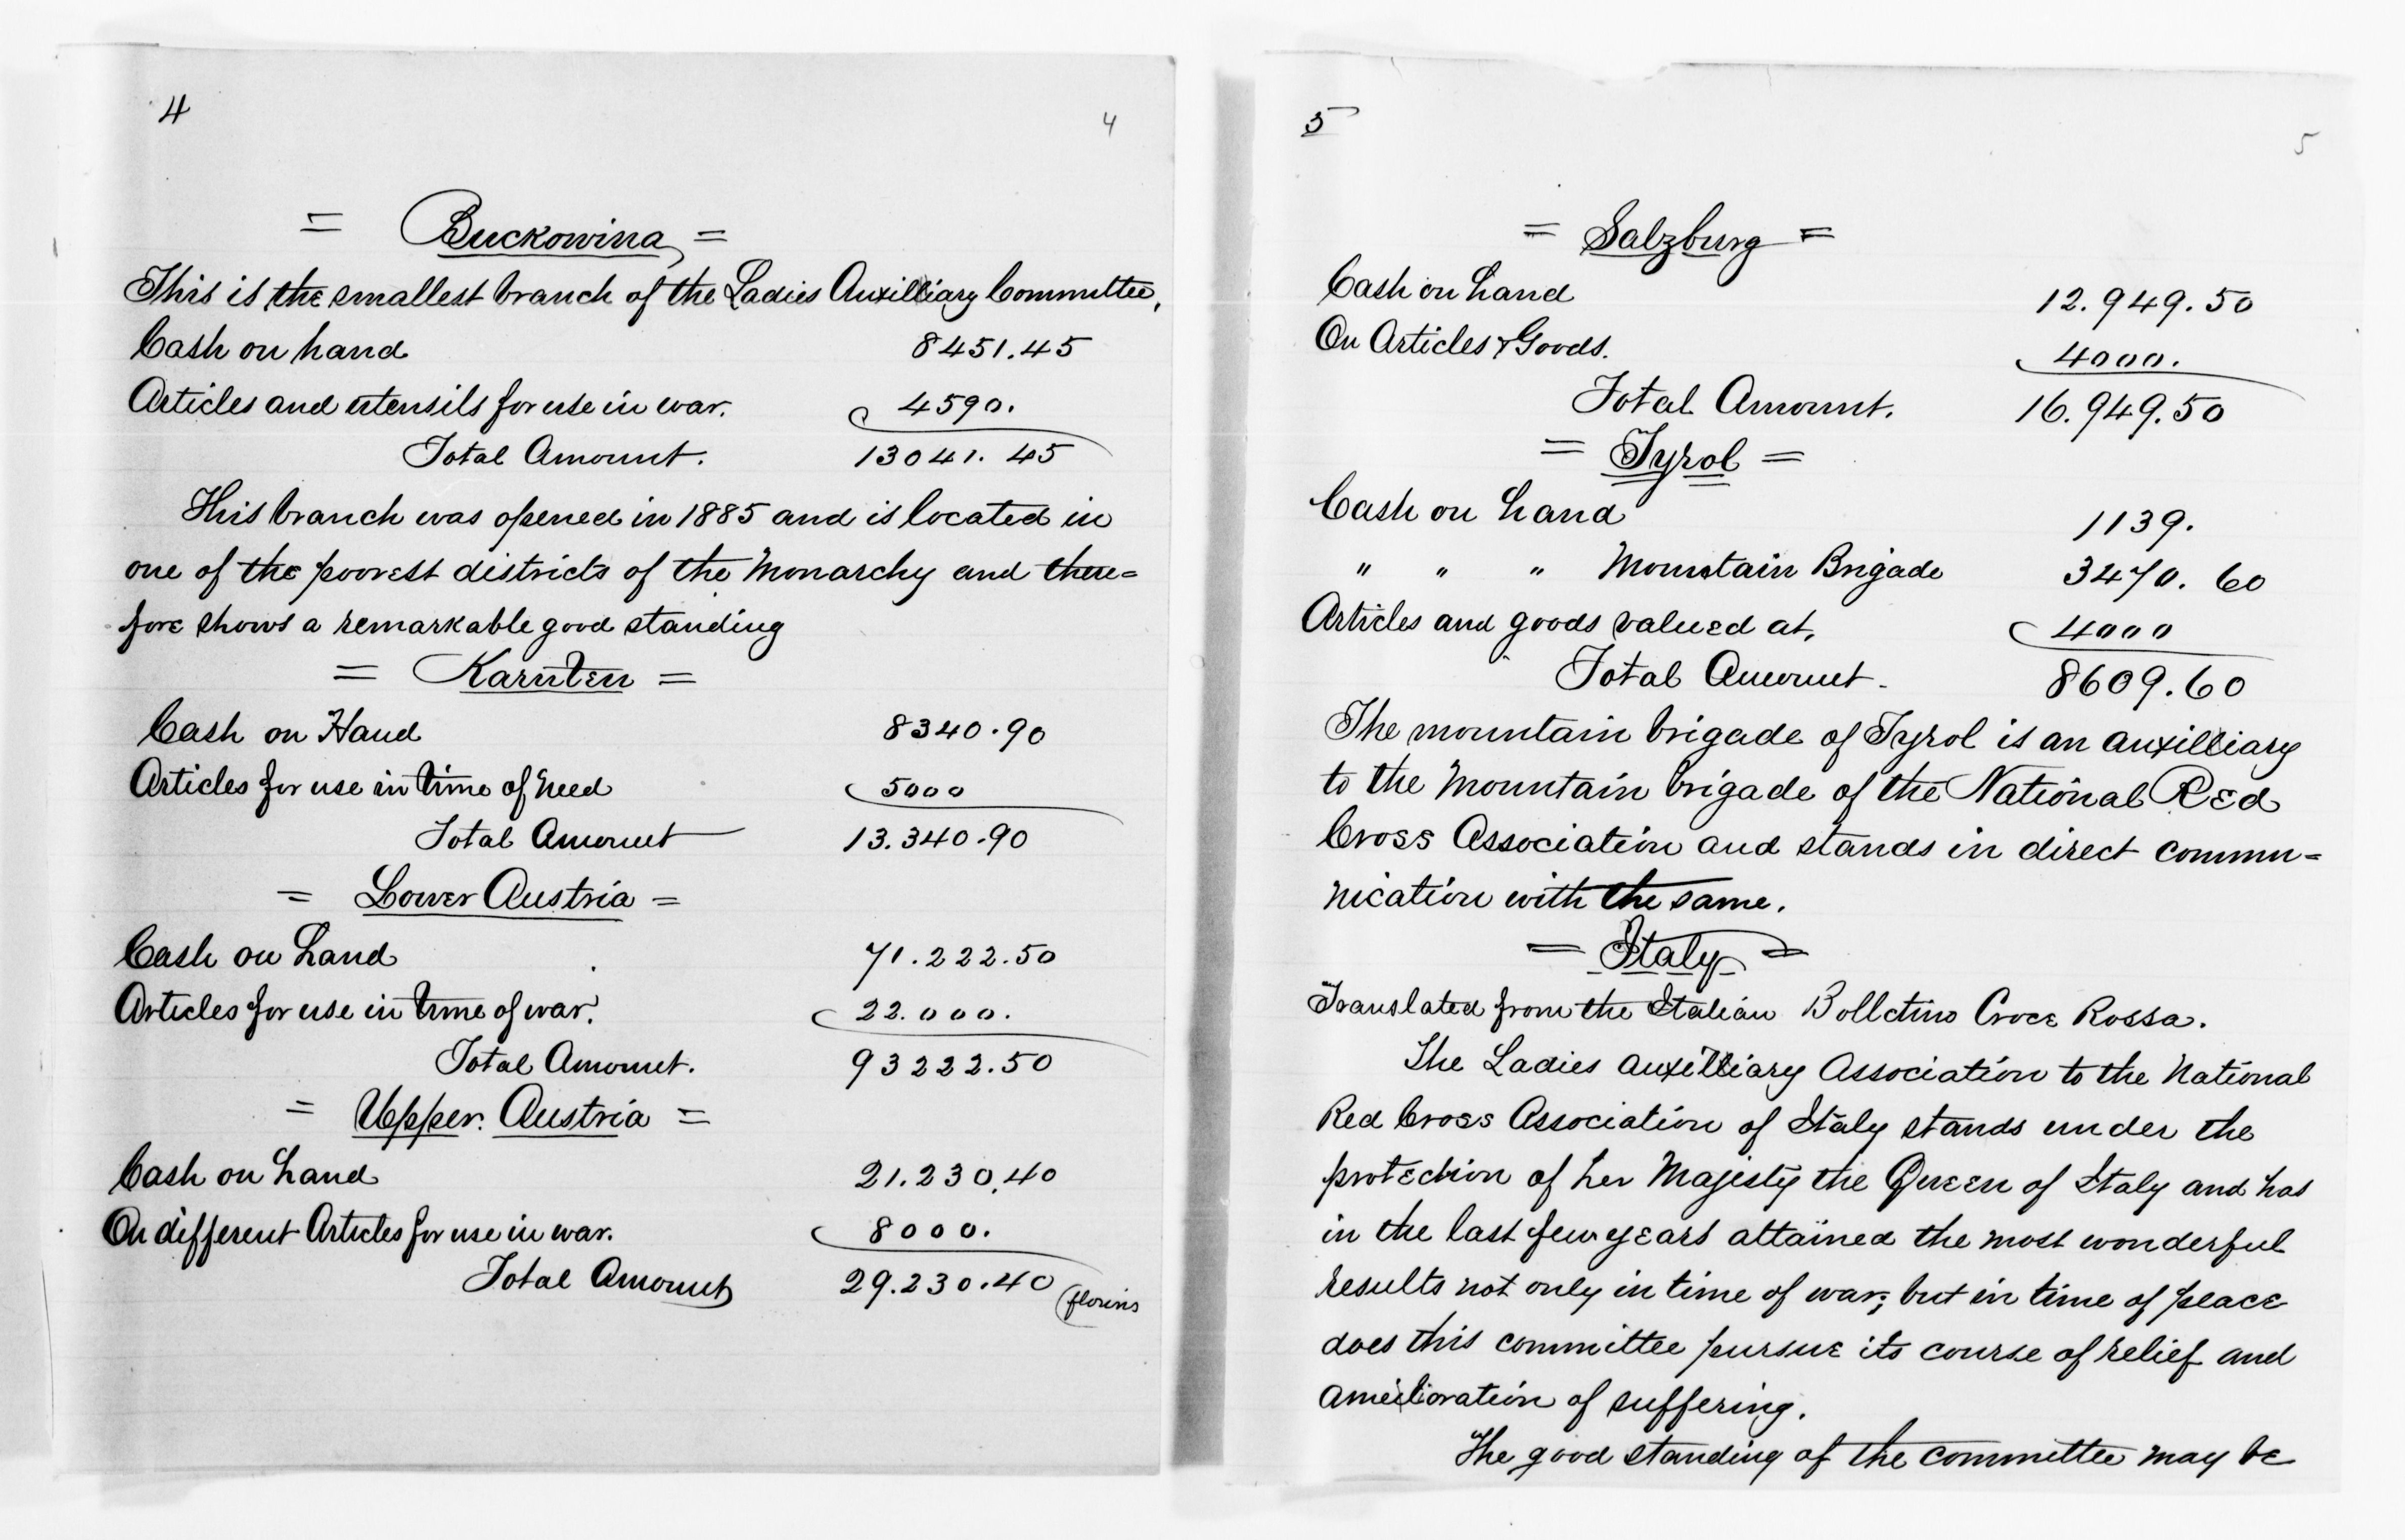 4
4
= Buckowina =
This is the smallest branch of the Ladies Auxilliary Committee,
Cash on hand 8451.45
Articles and utensils for use in war. 4590.
Total Amount. 13041.45
This branch was opened in 1885 and is located in
one of the poorest districts of the Monarchy and there=
fore shows a remarkable good standing
= Karnten =
Cash on Hand 8340.90
Articles for use in time of need 5000
Total Amount 13.340.90
= Lower Austria =
Cash on hand 71.222.50
Articles for use in time of war. 22.000.
Total Amount. 93222.50
= Upper. Austria =
Cash on hand 21.230.40
On different Articles for use in war. 8000.
Total Amount 29.230.40 (florins
5
5
= Salzburg =
Cash on hand 12.949.50
On Articles & Goods. 4000.
Total Amount. 16.949.50
= Tyrol =
Cash on hand 1139.
" " " Mountain Brigade 3470.60
Articles and goods valued at, 4000
Total Amount. 8609.60
The mountain brigade of Tyrol is an auxilliary
to the Mountain brigade of the National Red
Cross Association and stands in direct commu=
nication with the same.
= Italy =
Translated from the Italian Bolletino Croce Rossa.
The Ladies auxilliary Association to the National
Red Cross Association of Italy stands under the
protection of her Majesty the Queen of Italy and has
in the last few years attained the most wonderful
results not only in time of war; but in time of peace
does this committee pursue its course of relief and
amelioration of suffering.
The good standing of the committee may be